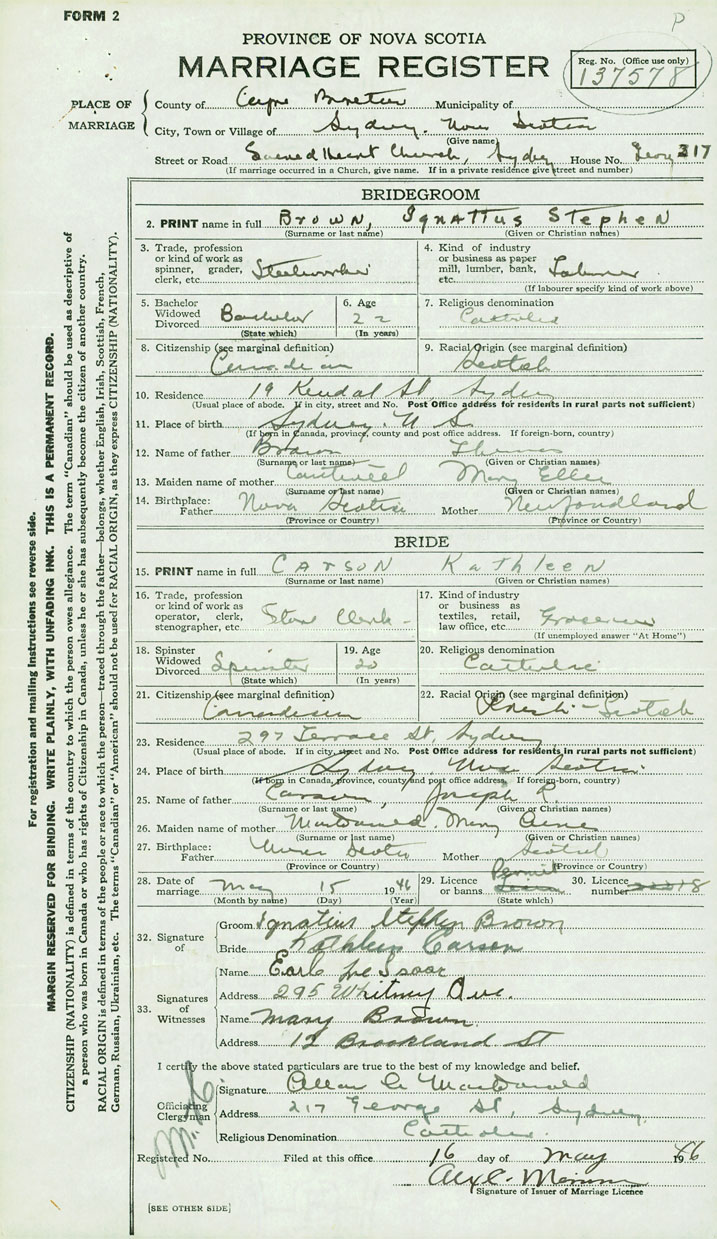 FORM 2
P
PROVINCE OF NOVA SCOTIA
MARRIAGE REGISTER
Reg. No. (Office use only)
137578
PLACE OF MARRIAGE
County of Cape Breton Municipality of
City, Town or Village of Sydney. Nova Scotia
(Give name)
Street or Road Sacred Heart Church, Sydney House No. 317
(If marriage occurred in a Church, give name. If in a private residence give street and number)
BRIDEGROOM
2. PRINT name in full BROWN, IGNATIUS STEPHEN
(Surname or last name) (Given or Christian names)
3. Trade, profession or kind of work as spinner, grader, clerk, etc. Steelworker
4. Kind of industry or business as paper mill, lumber, bank, etc. Labourer
(If labourer specify kind of work above)
5. Bachelor Widowed Divorced Bachelor
(State which)
6. Age 22
(In years)
7. Religious denomination Catholic
8. Citizenship (see marginal definition) Canadian
9. Racial Origin (see marginal definition) Scotch
10. Residence 19 Kendal St. Sydney
(Usual place of abode. If in city, street and No. Post Office address for residents in rural parts not sufficient)
11. Place of birth Sydney. N S.
(If born in Canada, province, county and post office address. If foreign-born, country)
12. Name of father Brown Thomas
(Surname or last name) (Given or Christian names)
13. Maiden name of mother Cantwell Mary Ellen
(Surname or last name) (Given or Christian names)
14. Birthplace: Father Nova Scotia Mother Newfoundland
(Province or Country) (Province or Country)
BRIDE
15. PRINT name in full CARSON KathLEEN
(Surname or last name) (Given or Christian names)
16. Trade, profession or kind of work as operator, clerk, stenographer, etc. Store Clerk -
17. Kind of industry or business as textiles, retail, law office, etc. Groceries
(If unemployed answer "At Home")
18. Spinster Widowed Divorced Spinster
(State which)
19. Age 20
(In years)
20. Religious denomination Catholic
21. Citizenship (see marginal definition) Canadian
22. Racial Origin (see marginal definition) Irish-Scotch
23. Residence 297 Terrace St, Sydney
(Usual place of abode. If in city, street and No. Post Office address for residents in rural parts not sufficient)
24. Place of birth Sydney, Nova Scotia
(If born in Canada, province, county and post office address. If foreign-born, country)
25. Name of father Carson, Joseph
(Surname or last name) (Given or Christian names)
26. Maiden name of mother MacDonald. Mary Anne
(Surname or last name) (Given or Christian names)
27. Birthplace: Father Nova Scotia Mother Scotland
(Province or Country) (Province or Country)
28. Date of marriage May 15 1946
(Month by name) (Day) (Year)
29. Licence or banns Permit
(State which)
30. Licence number 18
32. Signature of
Groom Ignatius Stephen Brown
Bride Kathleen Carson
33. Signatures of Witnesses
Name Earle
Address 295 Whitney Ave.
Name Mary Brown.
Address 12 Brookland St
I certify the above stated particulars are true to the best of my knowledge and belief.
Officiating Clergyman
Signature Allan MacDonald
Address 217 George St, Sydney.
Religious Denomination Catholic.
Registered No. Filed at this office 16 day of May 1946
Signature of Issuer of Marriage Licence
[SEE OTHER SIDE]
For registration and mailing instructions see reverse side.
MARGIN RESERVED FOR BINDING. WRITE PLAINLY, WITH UNFADING INK. THIS IS A PERMANENT RECORD.
CITIZENSHIP (NATIONALITY) is defined in terms of the country to which the person owes allegiance. The term "Canadian" should be used as descriptive of
a person who was born in Canada or who has rights of Citizenship in Canada, unless he or she has subsequently become the citizen of another country.
RACIAL ORIGIN is defined in terms of the people or race to which the person—traced through the father—belongs, whether English, Irish, Scottish, French,
German, Russian, Ukrainian, etc. The terms "Canadian" or "American" should not be used for RACIAL ORIGIN, as they express CITIZENSHIP (NATIONALITY).